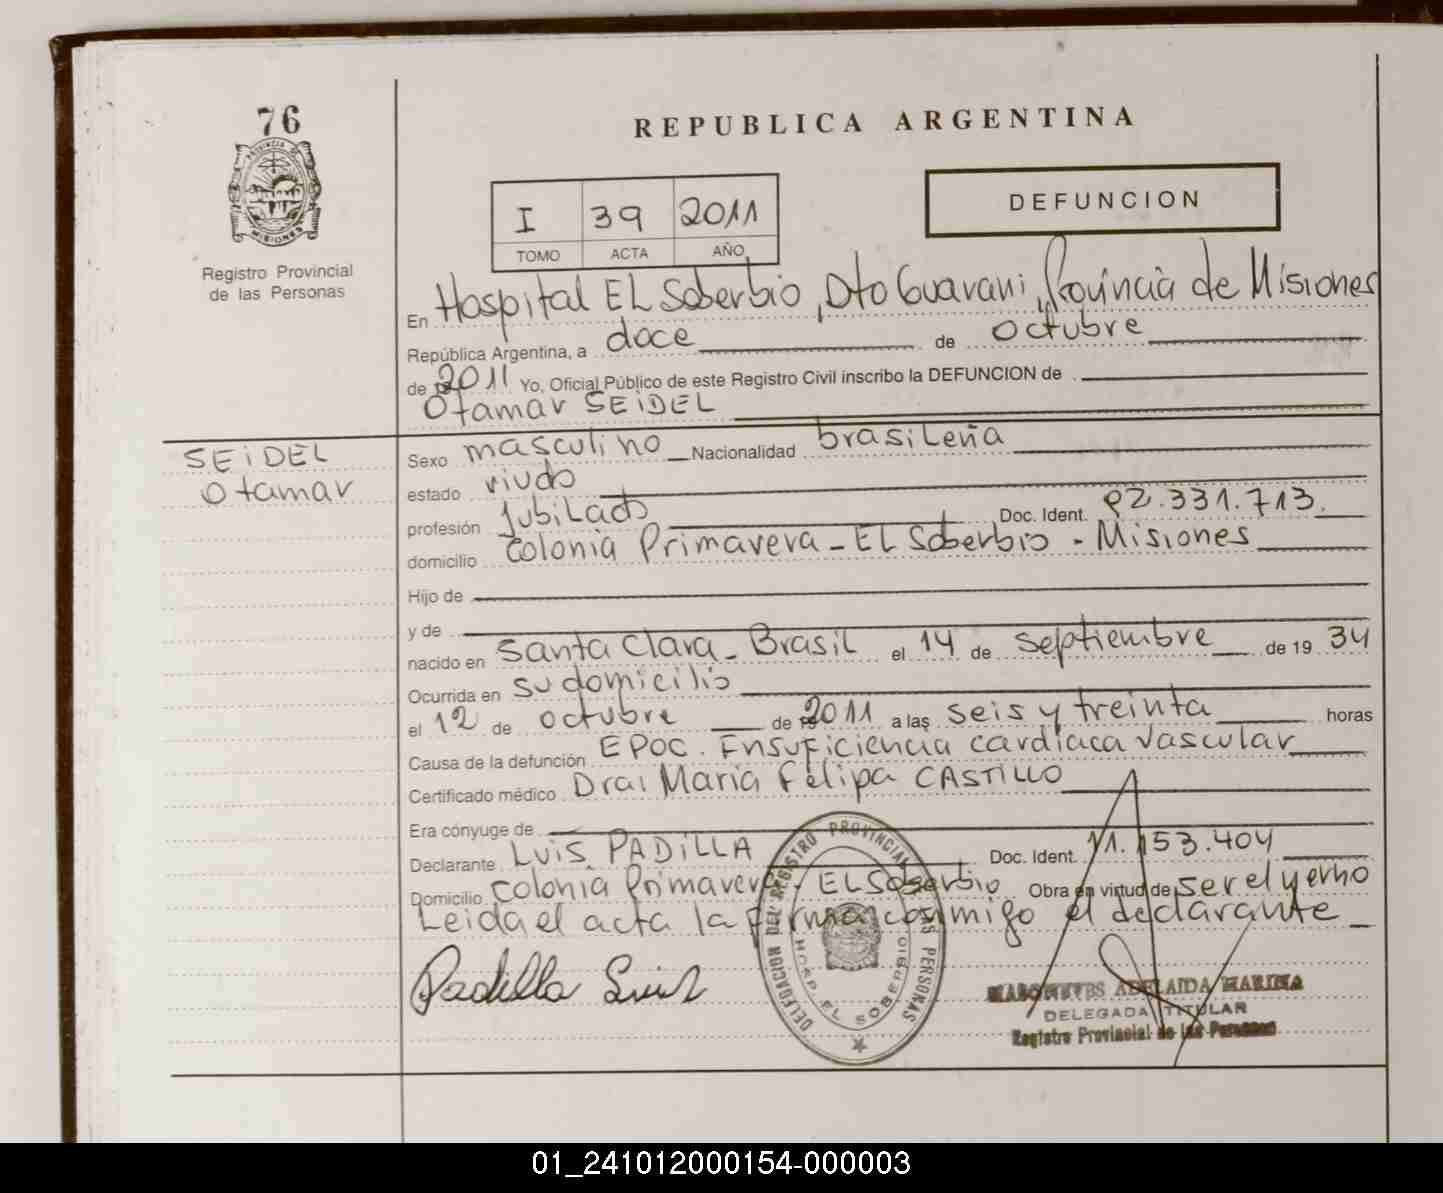 76
REPUBLICA ARGENTINA
PROVINCIA DE
MISIONES
Registro Provincial
de las Personas
I 39 2011
TOMO ACTA AÑO
DEFUNCION
En Hospital EL Soberbio, Dto Guarani, Provincia de Misiones
República Argentina, a doce de octubre
de 2011 Yo, Oficial Público de este Registro Civil inscribo la DEFUNCION de
Otamar SEiDEL
SEiDEL
Otamar
Sexo masculino Nacionalidad brasileña
estado viudo
profesión Jubilado Doc. Ident. 92.331.713.
domicilio Colonia Primavera - EL Soberbio - Misiones
Hijo de
y de
nacido en Santa Clara - Brasil el 14 de septiembre de 19 34
Ocurrida en su domicilio
el 12 de octubre de 2011 a las seis y treinta horas
Causa de la defunción EPOC. Ensuficiencia cardíaca vascular
Certificado médico Dra: Maria Felipa CASTILLO
Era cónyuge de
Declarante Luis PADiLLA Doc. Ident. 11.153.404
Domicilio Colonia Primavera - EL Soberbio Obra en virtud de ser el yerno
Leida el acta la firma conmigo el declarante
Padilla Luis
DELEGACION DEL REGISTRO PROVINCIAL DE LAS PERSONAS
HOSP. EL SOBERBIO
ADELAIDA MARINA
DELEGADA TITULAR
Registro Provincial de las Personas
01_241012000154-000003